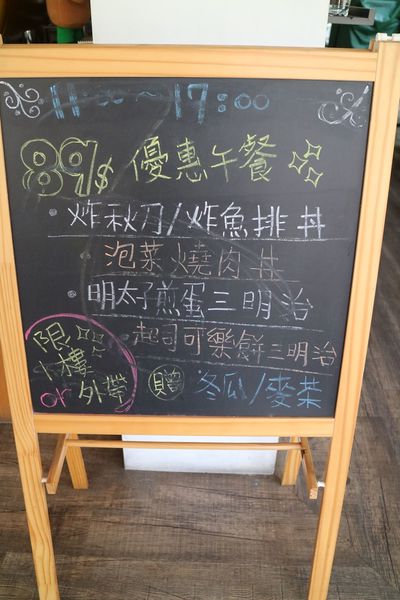 11:00~17:00
89$ 優惠午餐
·炸秋刀/炸魚排丼
·泡菜燒肉丼
·明太子煎蛋三明治
·起司可樂餅三明治
限
1樓
or 外帶
贈 冬瓜/麥茶